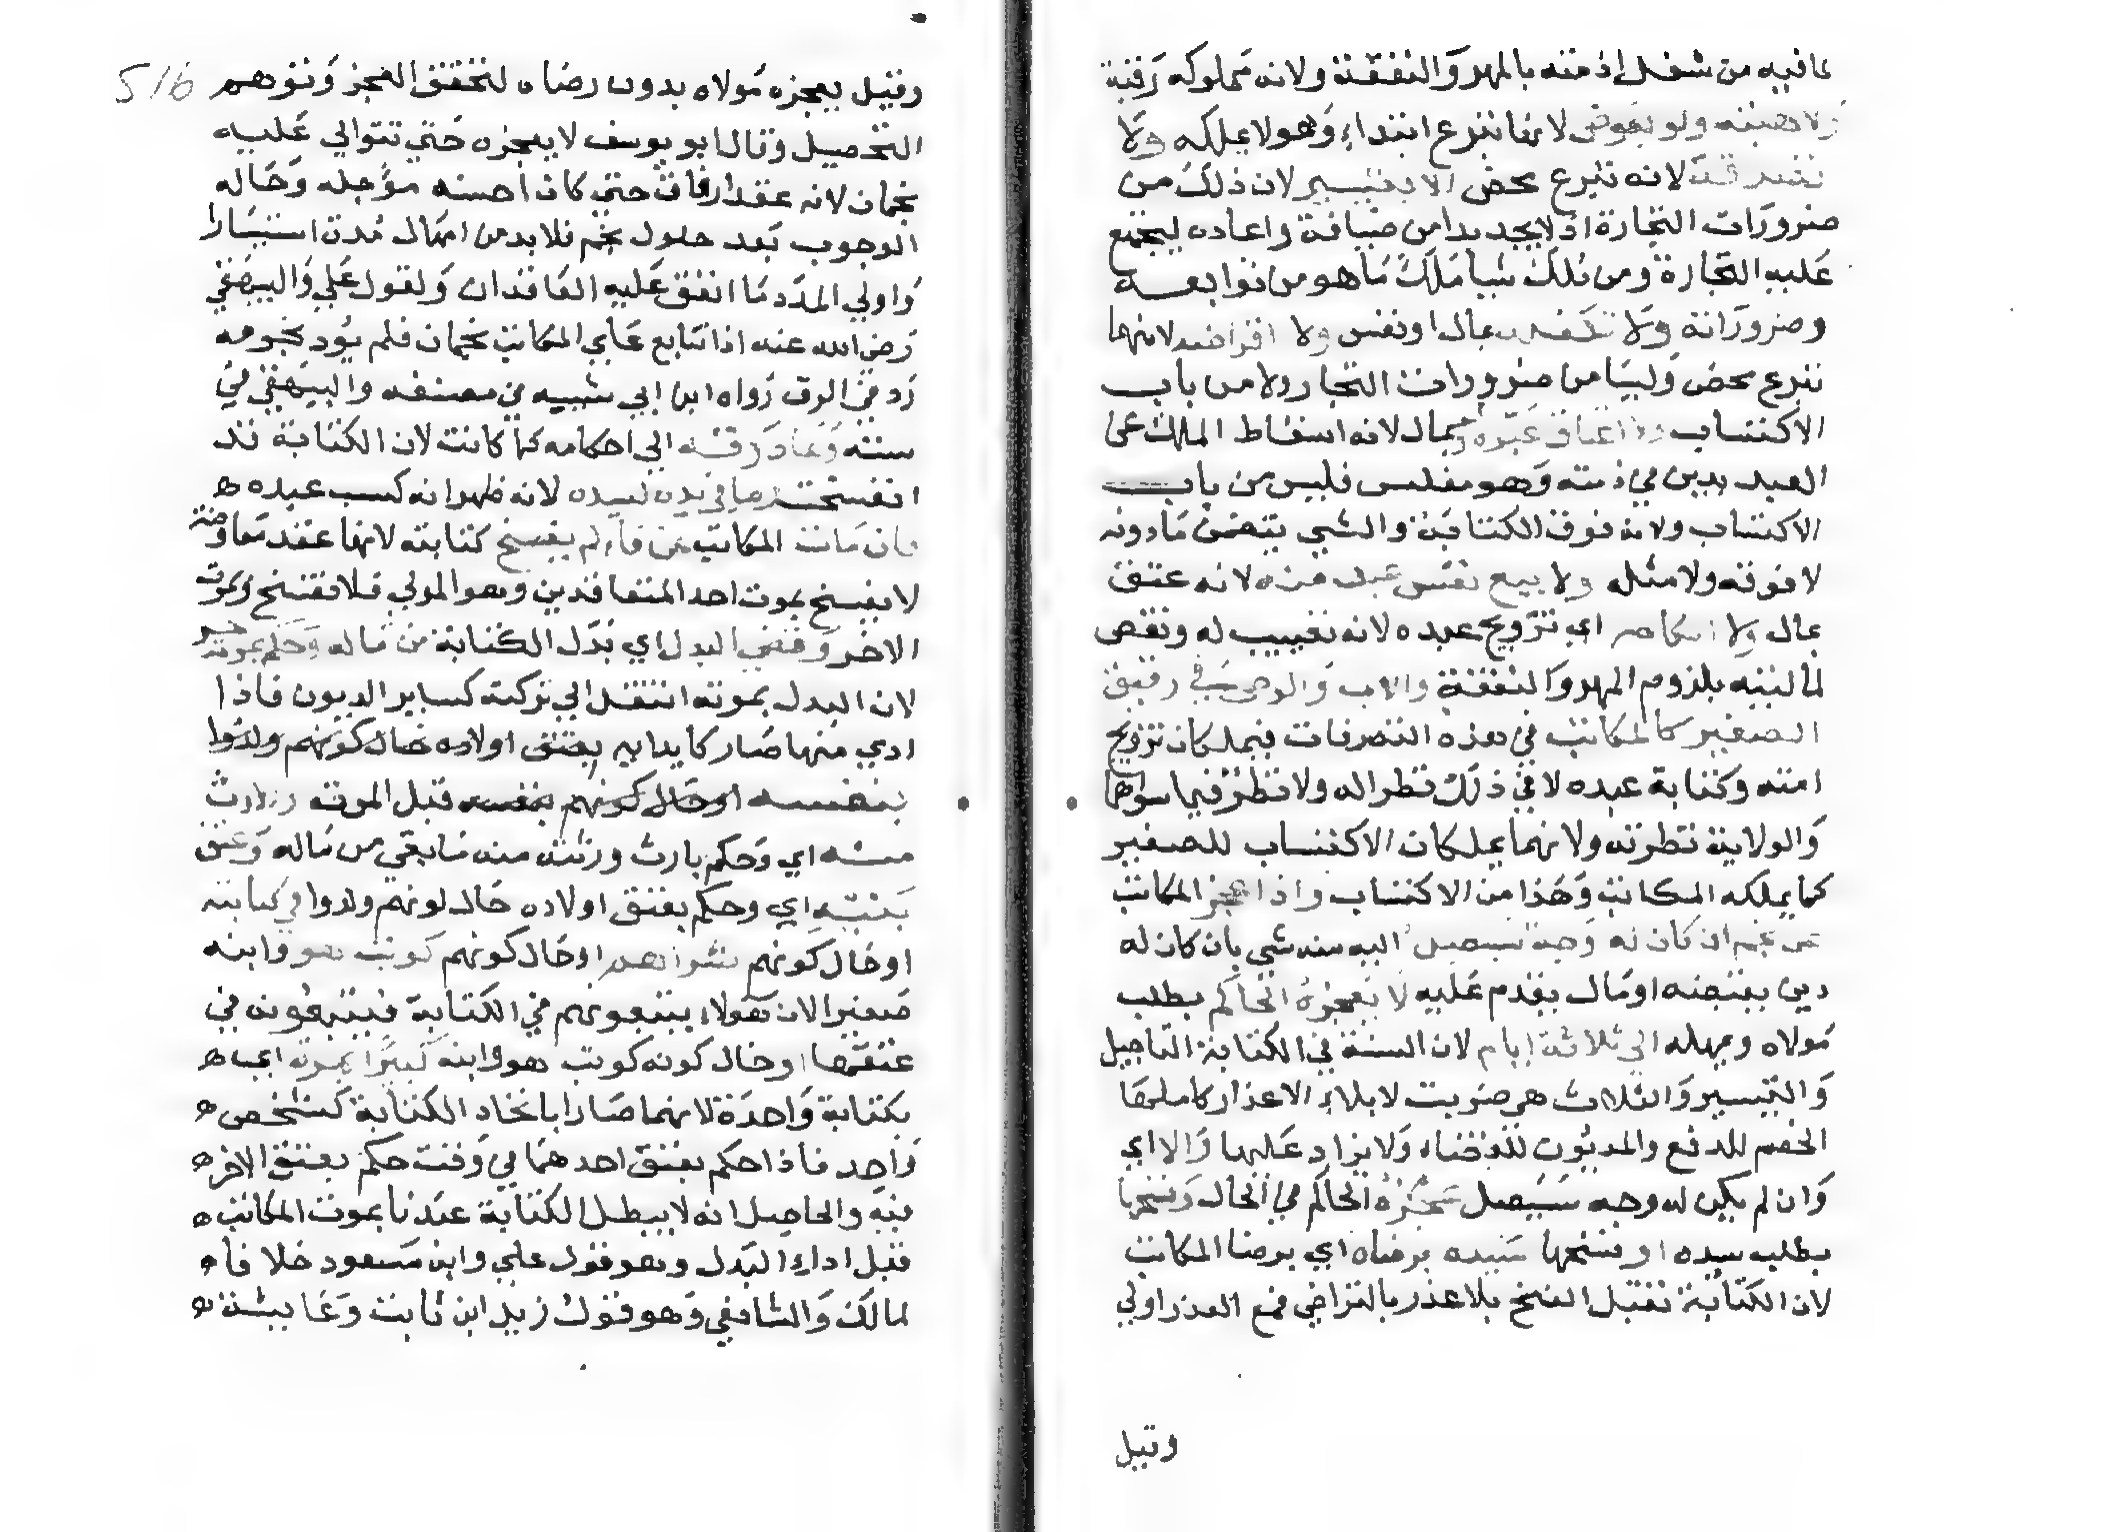 لما فيه من شغل اذ منه بالمهر والنفقة ولانه مملوكه رقبة
ولا هبته ولو بعوض لانها تبرع ابتداء وهو لا يملكه ولا
تصدقه لانه تبرع محض الا بيسير لان ذلك من
ضرورات التجارة اذ لا يجد بدا من ضيافة واعاده ليجتمع
عليه التجارة ومن ملك شيا ملك ما هو من توابعه
وضروراته ولا تكفله بمال او نفس ولا اقراضه لانهما
تبرع محض وليسا من ضرورات التجار ولا من باب
الاكتساب ولا اعتاق عبده بمال لانه اسقاط الملك عن
العبد بدين في ذمته وهو مفلس فليس من باب
الاكتساب ولانه فوق الكتابة والشي يتضمن ما دونه
لا فوقه ولا مثله ولا بيع نفس عبده منه لانه عتق
بمال ولا انكاحه اي تزويج عبده لانه تعييب له ونقص
لماليته بلزوم المهر والنفقة والاب والوصي في رقيق
الصغير كالمكاتب في هذه التصرفات فيملكان تزويج
امته وكتابة عبده لا في ذلك نظرا له ولا نظر فيما سواهما
والولاية نظرته ولانهما يملكان الاكتساب للصغير
كما يملكه المكاتب وهذا من الاكتساب واذا عجز المكاتب
عن نجم ان كان له وجه سيصل اليه منه شي بان كان له
دين يقبضه او مال يقدم عليه لا يعجزه الحاكم بطلب
مولاه ويمهله الي ثلاثة ايام لان السنة في الكتابة التاجيل
والتيسير والثلاث هي ضربت لابلاء الاعذار كامهال
الخصم للدفع والمديون للقضاء ولا يزاد عليها والا اي
وان لم يكن له وجه سيصل عجزه الحاكم في الحال وفسخها
بطلب سيده او فسخها سيده برضاه اي برضا المكاتب
لان الكتابة تقبل الفسخ بلا عذر بالتراضي فمع العذر اولي
وقيل
516
وقيل يعجزه مولاه بدون رضاه لتحقق العجز وتوهم
التحصيل وقال ابو يوسف لا يعجزه حتي تتوالي عليه
نجمان لانه عقد ارفاق حتي كان احسنه مؤجله وحالة
الوجوب بعد حلول نجم فلا بد من امهال مدة استيسارا
واولي المدد ما اتفق عليه العاقدان ولقول علي والبيهقي
رضي الله عنه اذا تتابع علي المكاتب نجمان فلم يؤد نجومه
رد في الرق رواه ابن ابي شيبه في مصنفه والبيهقي في
سننه وعاد رقه الي احكامه كما كانت لان الكتابة قد
انفسخت وما في يده لسيده لانه ظهر انه كسب عبده
فان مات المكاتب عن فاء لم يفسخ كتابته لانها عقد معاوضة
لا يفسخ بموت احد المتعاقدين وهو المولي فلا تفسخ وبموت
الاخر وقضي البدل اي بدل الكتابة من ماله وحكم بموته حرا
لان البدل بموته انتقل الي تركته كساير الديون فاذا
ادي منها صار كابدايه بعتق اولاده حال كونهم ولدوا
بنفسه او حال كونهم بنفسه قبل الموت والارث
منه اي وحكم بارث ورثته منه ما بقي من ماله وعتق
بنيه اي وحكم بعتق اولاده حال كونهم ولدوا في كتابته
او حال كونهم شراهم او حال كونهم كوتب هو وابنه
صغيرا لان هولاء يتبعونهم في الكتابة فيتبعونه في
عتقها او حال كونه كوتب هو وابنه كبيرا بمرة اي
بكتابة واحدة لانهما صارا باتحاد الكتابة كشخص
واحد فاذا حكم بعتق احدهما في وقت حكم بعتق الاخر
فيه والحاصل انه لا يبطل الكتابة عندنا بموت المكاتب
قبل اداء البدل وهو قول علي وابن مسعود خلا فا
لمالك والشافعي وهو قول زيد ابن ثابت وعايشة